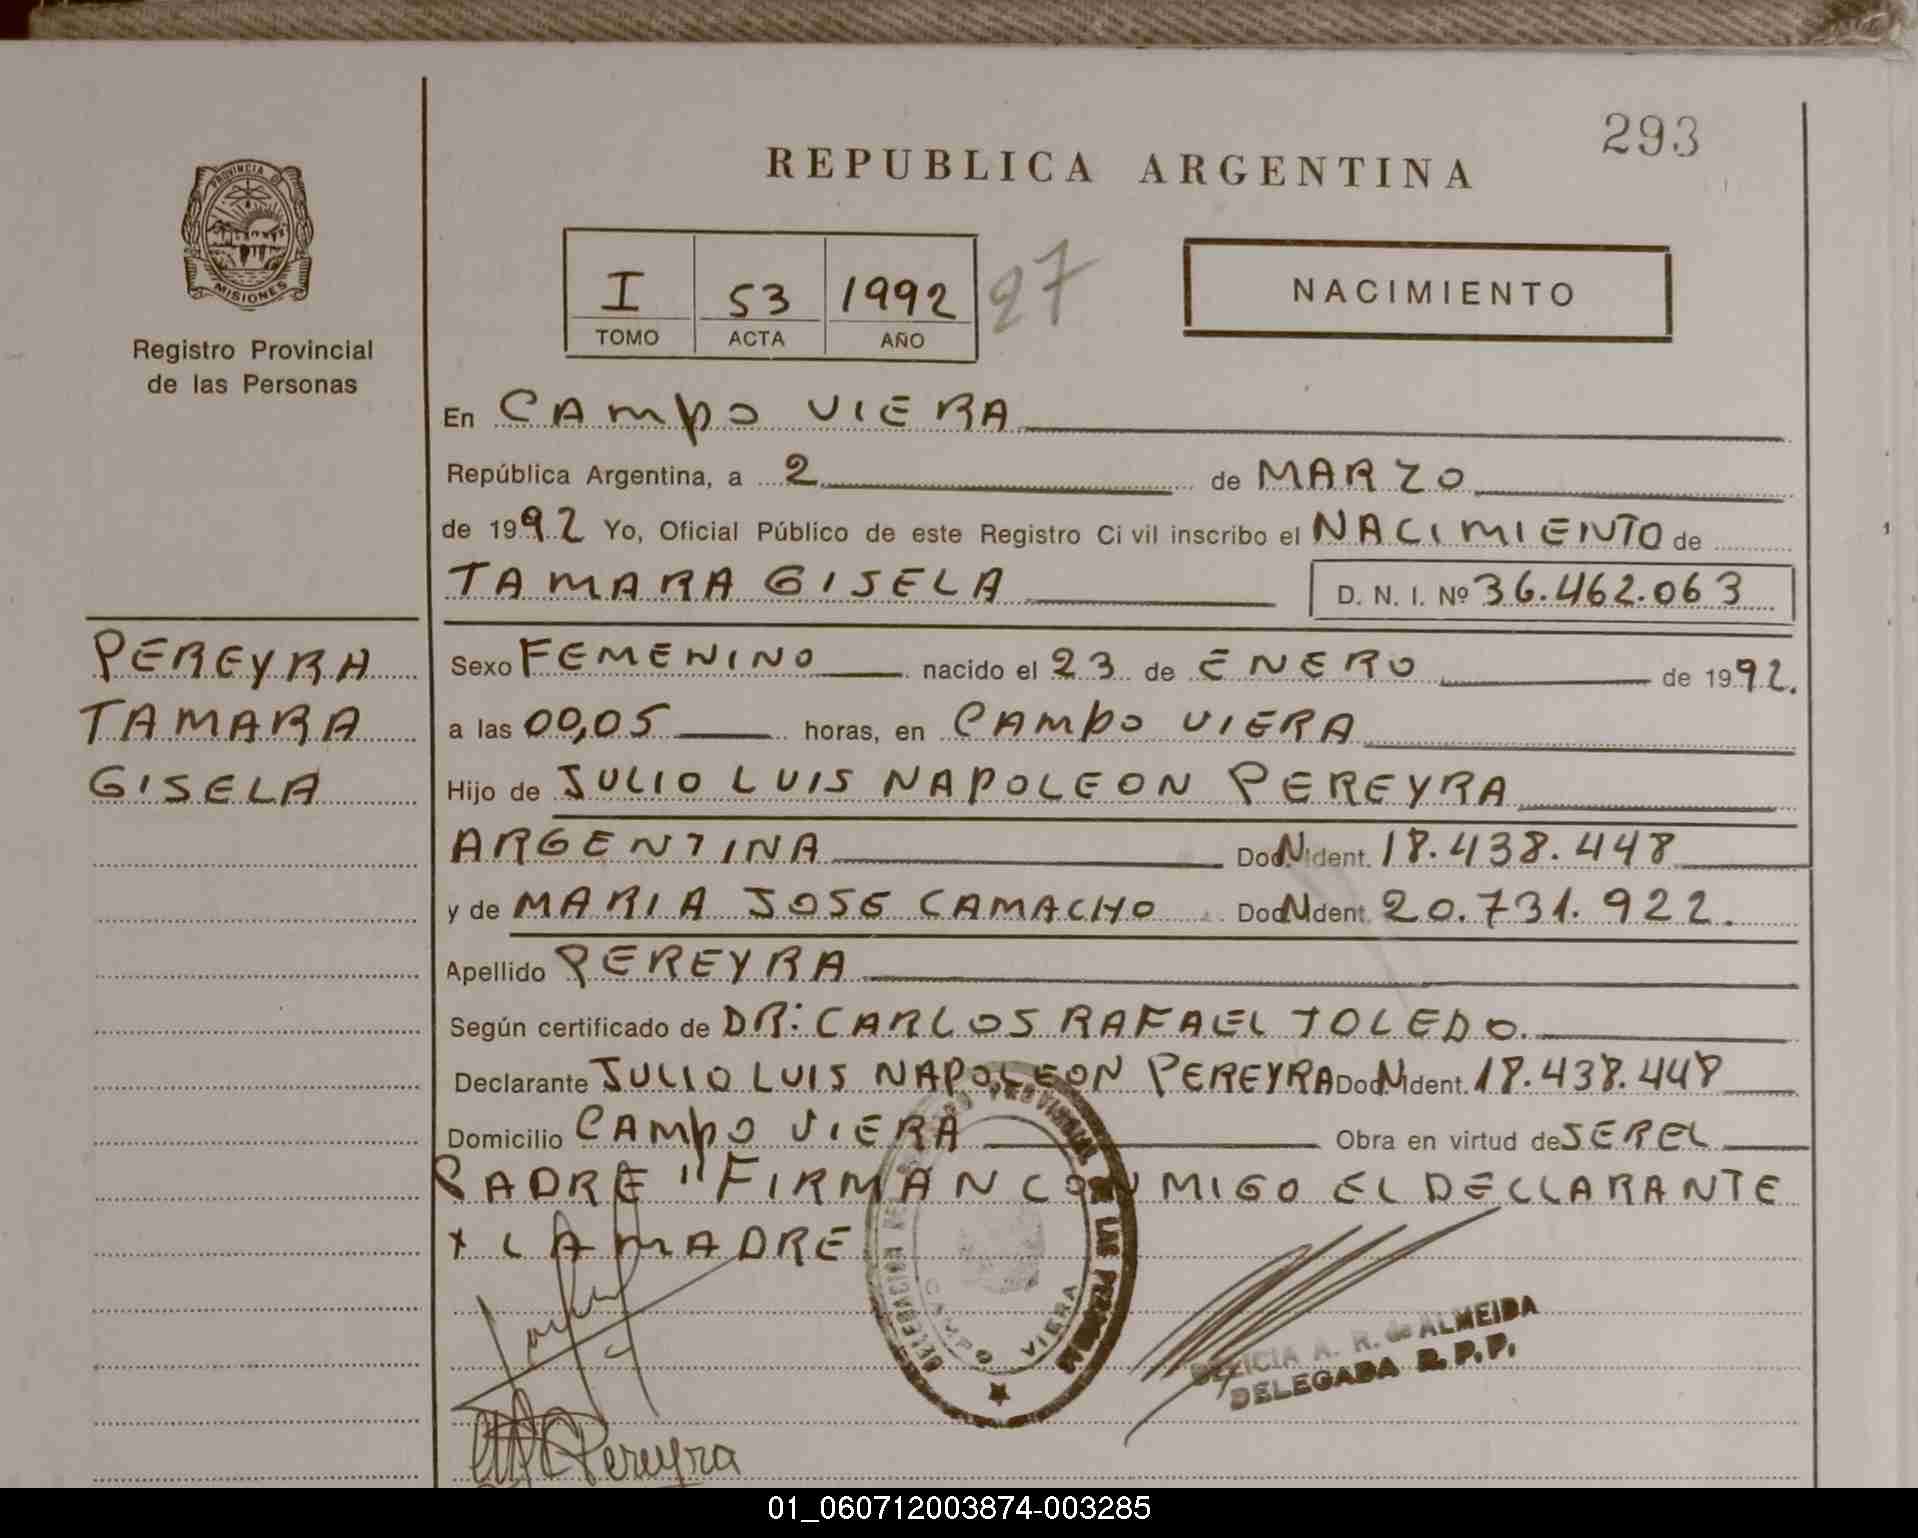 293
REPUBLICA ARGENTINA
PROVINCIA DE
MISIONES
Registro Provincial
de las Personas
I 53 1992 27
TOMO ACTA AÑO
NACIMIENTO
En CAMPO VIERA
República Argentina, a 2 de MARZO
de 1992 Yo, Oficial Público de este Registro Civil inscribo el NACIMIENTO de
TAMARA GISELA D. N. I. Nº 36.462.063
PEREYRA
TAMARA
GISELA
Sexo FEMENINO nacido el 23 de ENERO de 1992.
a las 00,05 horas, en CAMPO VIERA
Hijo de JULIO LUIS NAPOLEON PEREYRA
ARGENTINA Doc.N.Ident. 18.438.448
y de MARIA JOSE CAMACHO Doc.N.Ident. 20.731.922.
Apellido PEREYRA
Según certificado de DR: CARLOS RAFAEL TOLEDO.
Declarante JULIO LUIS NAPOLEON PEREYRA Doc.N.Ident. 18.438.448
Domicilio CAMPO VIERA Obra en virtud de SER EL
PADRE " FIRMAN CONMIGO EL DECLARANTE
Y LA MADRE
PROVINCIAL DE LAS PERSONAS
CAMPO VIERA
A. R. de ALMEIDA
DELEGADA R.P.P.
Pereyra
01_060712003874-003285